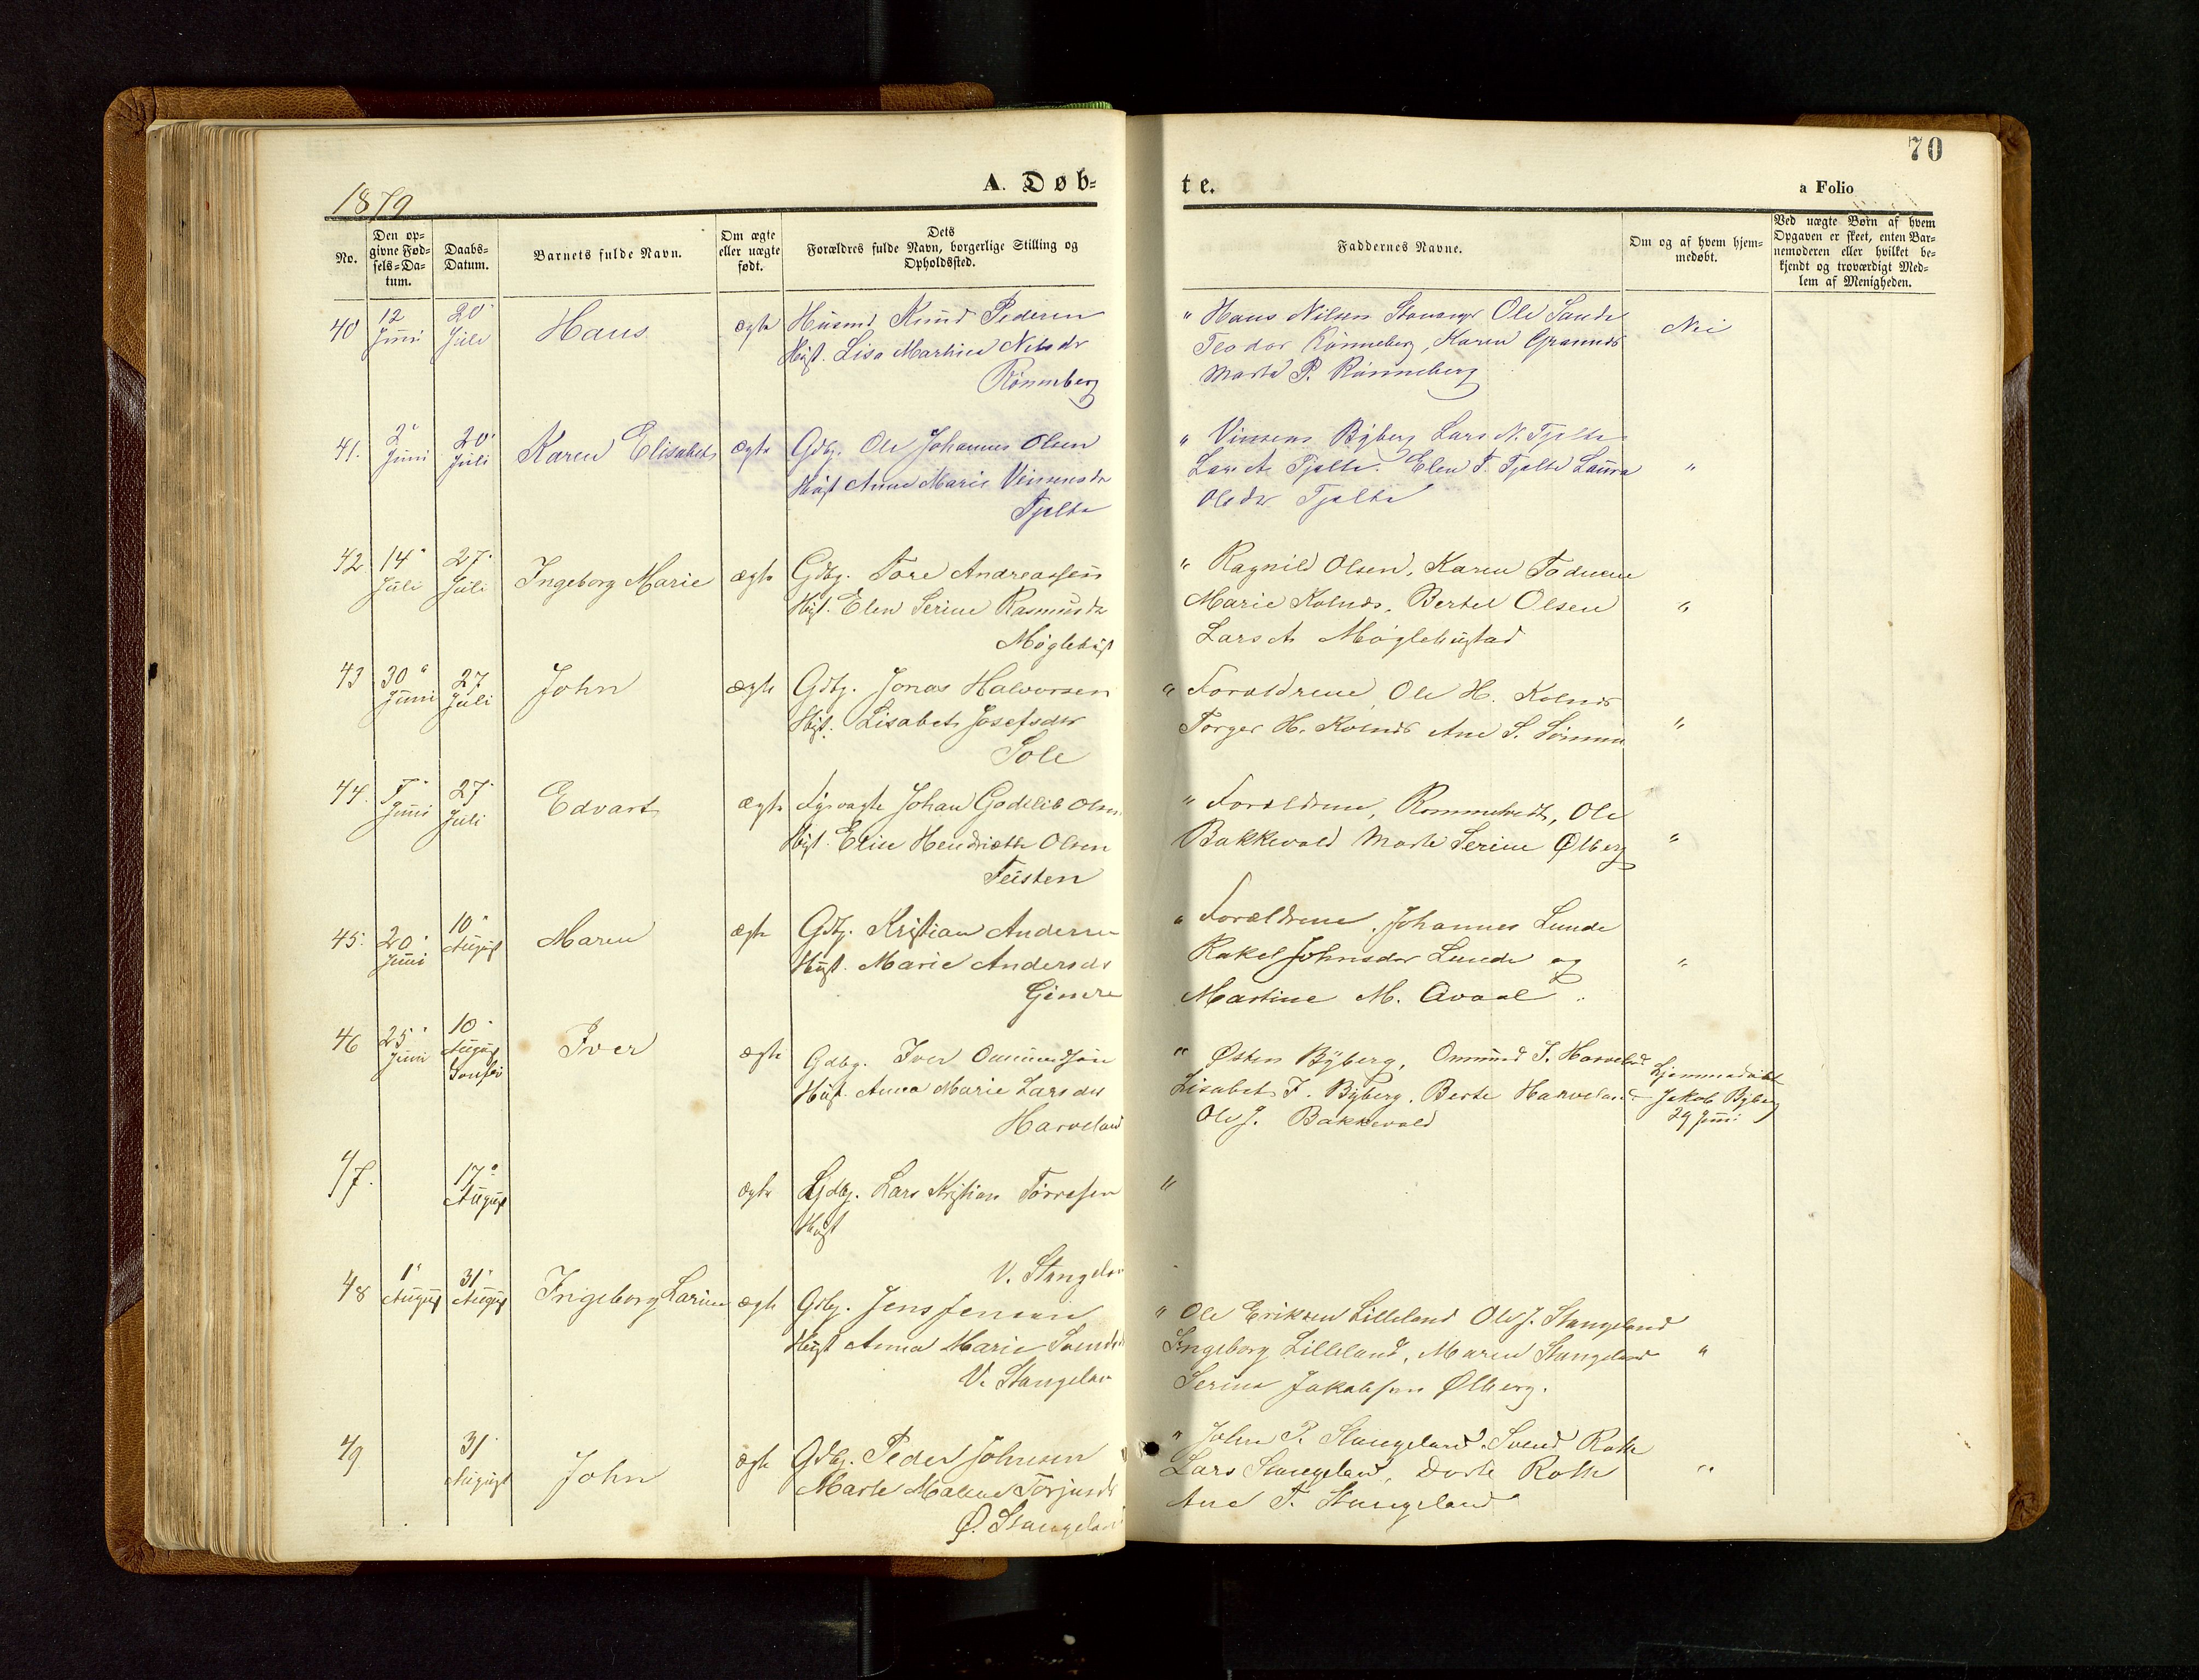 70
1879
A. Døb-
te.
a Folio
No.
Den op-
givne Fød-
sels-Da-
tum.
Daabs-
Datum.
Barnets fulde Navn.
Om ægte
eller uægte
født.
Dets
Forældres fulde Navn, borgerlige Stilling og
Opholdssted.
Faddernes Navne.
Om og af hvem hjem-
medøbt.
Ved uægte Børn af hvem
Opgaven er skeet, enten Bar-
nemoderen eller hvilket be-
kjendt og troværdigt Med-
lem af Menigheden.
40 12 Juni 20 Juli Hans ægte Husmd Knud Pedersen
Hust. Lisa Martina Nilsdr
Rønneberg
" Hans Nilsen Stavanger Ole Sande
Teodor Rønneberg, Karen Grannes
Marta P. Rønneberg
Nei
41. 2 Juni 20 Juli Karen Elisabet ægte Gdbg. Ole Johannes Olsen
Hust Anne Marie Vinsensdr
Tjelta
" Vinsens Byberg Lars N. Tjelta
Lars A. Tjelta. Elen T. Tjelta Laura "
Olsdr Tjelta
42. 14 Juli 27 Juli Ingeborg Marie ægte Gdbg. Tore Andreassen
Hust. Elen Serine Rasmusdr
Møglehust
" Ragnild Olsen, Karen
Marie Kolnes, Bertel Olsen "
Lars A. Møglehustad
43 30 Juni 27 Juli John ægte Gdbg. Jonas Halvorsen
Hust. Lisabet Josefsdr
Sole
" Forældrene, Ole H. Kolnes
Torger H. Kolnes Ane S. Sømme "
44. Juni 27 Juli Edvart ægte Fyrvagte Johan Godtlib Olsen
Hust. Elise Hendriette Olsen
Feisten
" Forældrene, Rommetvedt, Ole
Bakkevold Marte Serine Ølberg "
45. 20 Juni 10 August Maren ægte Gdbg. Kristian Andersen
Hust. Marie Andersdr
Gimre
" Forældrene, Johannes Lunde
Rakel Johnsdr Lunde og "
Martine M. Qvaal
46 25 Juni 10 August Iver ægte Gdbg. Iver Ommundsen
Hust. Anna Marie Larsdr
Harveland
" Østen Byberg, Ommund I. Harveland
Lisabet F. Byberg, Berte Harveland
Ole J. Bakkevold
hjemmedøbt
Jakob Byberg
29 Juni
47. 17 August ægte Gdbg. Lars Kristian Torresen
Hust
V. Stangelan
"
48 1 August 31 August Ingeborg Larine ægte Gdbg. Jens Jensen
Hust Anna Marie Svends
V. Stangelan
" Ole Eriksen Lilleland Ole J. Stangeland
Ingeborg Lilleland, Maren Stangeland "
Serine Jakobsen Ølberg.
49 31 August John ægte Gdbg. Peder Johnsen
Marte Malene Torjusdr
Ø. Stangeland
" John P. Stangeland, Svend Rott
Lars Stangeland, Dorte Rott "
Ane T. Stangeland